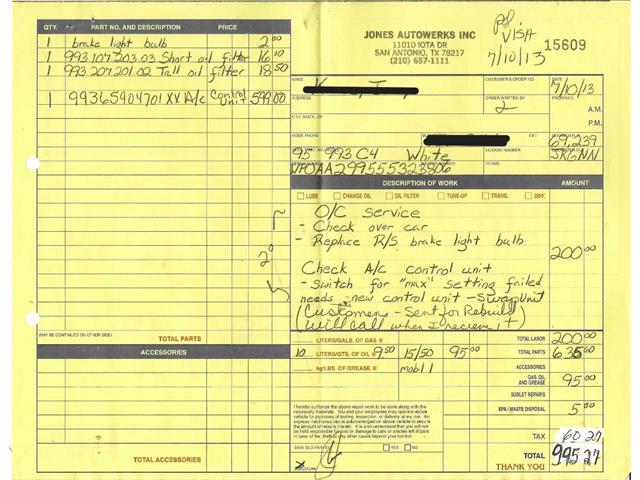 JONES AUTOWERKS INC
11010 IOTA DR
SAN ANTONIO, TX 78217
(210) 657-1111
pd
VISA
7/10/13
15609
QTY. PART NO. AND DESCRIPTION PRICE
1 brake light bulb 2 00
1 993.107.203.03 Short oil filter 16 10
1 993.207.201.02 Tall oil filter 18 50
1 99365904701XX A/c Control Unit 599.00
NAME CUSTOMER'S ORDER NO. 7/10/13
ADDRESS ORDER WRITTEN BY PROMISED
2 A.M.
CITY, STATE, ZIP P.M.
HOME PHONE EXT 69,239
95 993 C4 White LICENSE NUMBER JRGNN
WPOAA299555323806 TERMS
DESCRIPTION OF WORK AMOUNT
LUBE CHANGE OIL OIL FILTER TUNE-UP TRANS. DIFF.
O/C Service
- Check over car
- Replace R/S brake light bulb
2.0 200 00
Check A/c control unit
- Switch for "max" setting failed
needs new control unit - Swap Unit
(Customers - Sent for Rebuild)
(will call when I recieve it)
(MAY BE CONTINUED ON OTHER SIDE)
TOTAL PARTS
ACCESSORIES
TOTAL ACCESSORIES
LITERS/GALS. OF GAS @ TOTAL LABOR 200 00
10 LITERS/QTS. OF OIL @ 9 50 15/50 95 00 TOTAL PARTS 635 60
kg/LBS. OF GREASE @ mobil 1 ACCESSORIES
GAS, OIL AND GREASE 95 00
SUBLET REPAIRS
EPA / WASTE DISPOSAL 5 00
I hereby authorize the above repair work to be done along with the
necessary materials. You and your employees may operate above
vehicle for purposes of testing, inspection, or delivery at my risk. An
express mechanic's lien is acknowledged on above vehicle to secure
the amount of repairs thereto. It is also understood that you will not
be held responsible for loss or damage to cars or articles left in cars
in case of fire, theft or any other cause beyond your control.
YES NO
TAX 60 27
X TOTAL 995 27
THANK YOU